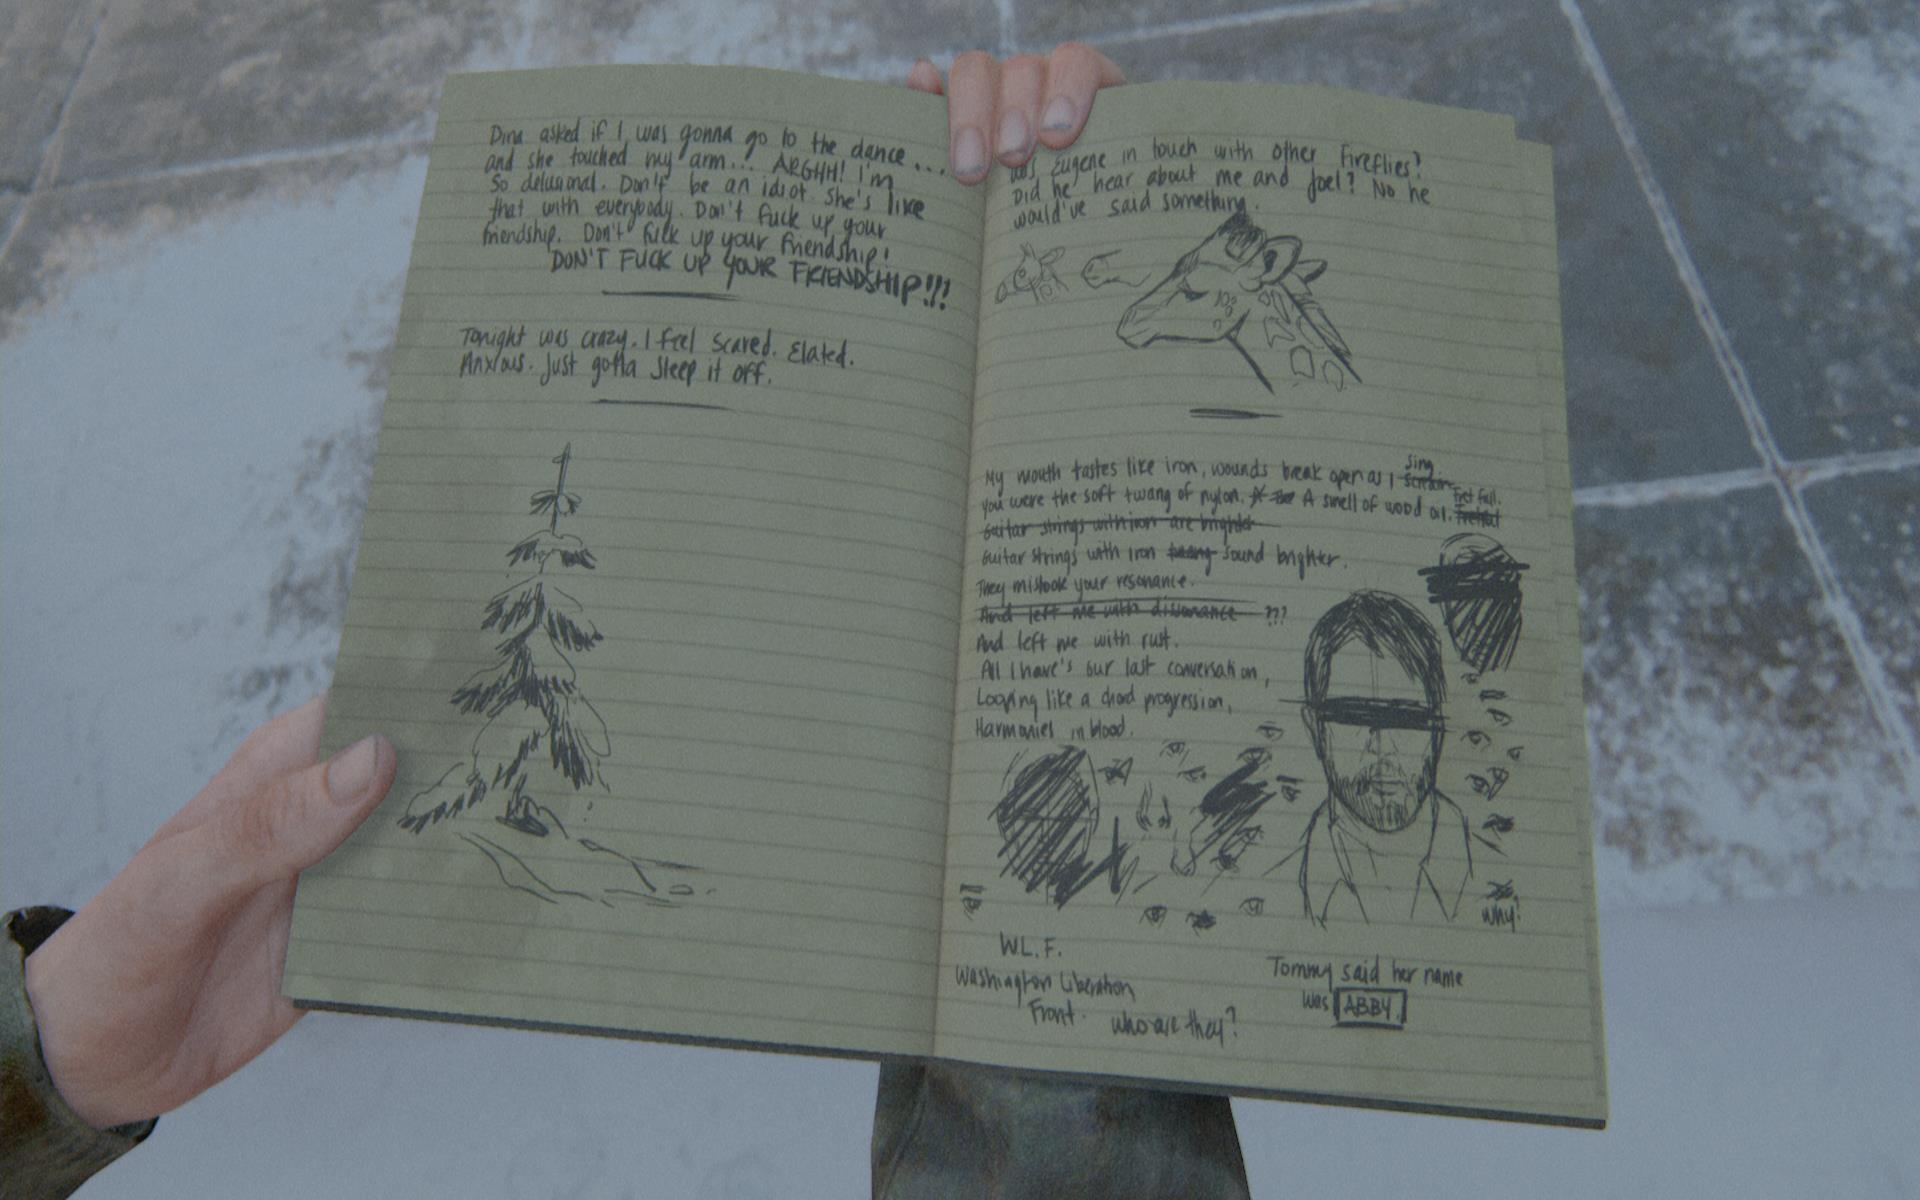 Dina asked if I was gonna go to the dance...
and she touched my arm... ARGHH! I'm
so delusional. Don't be an idiot. She's like
that with everybody. Don't fuck up your
friendship. Don't fuck up your friendship!
DON'T FUCK UP YOUR FRIENDSHIP!!!
Tonight was crazy. I feel scared. Elated.
Anxious. Just gotta sleep it off.
Was Eugene in touch with other Fireflies?
Did he hear about me and Joel? No he
would've said something.
My mouth tastes like iron, wounds break open as I scream sing
You were the soft twang of nylon. A smell of wood oil. Fretful Fret full.
Guitar strings with iron are brighter
Guitar strings with iron twang sound brighter.
They mistook your resonance.
And left me with dissonance ???
And left me with rust.
All I have's our last conversation,
Looping like a chord progression,
Harmonies in blood.
why?
W.L.F.
Washington Liberation
Front. who are they?
Tommy said her name
was ABBY.